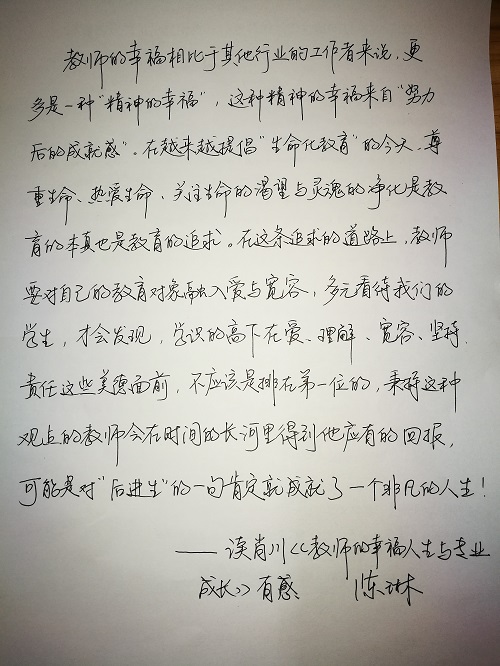 教师的幸福相比于其他行业的工作者来说，更
多是一种“精神的幸福”，这种精神的幸福来自“努力
后的成就感”。在越来越提倡“生命化教育”的今天，尊
重生命、热爱生命、关注生命的渴望与灵魂的净化是教
育的本真也是教育的追求。在这条追求的道路上，教师
要对自己的教育对象融入爱与宽容，多元看待我们的
学生，才会发现，学识的高下在爱、理解、宽容、坚持、
责任这些美德面前，不应该是排在第一位的，秉持这种
观点的教师会在时间的长河里得到他应有的回报，
可能是对“后进生”的一句肯定就成就了一个非凡的人生！
——读肖川《教师的幸福人生与专业
成长》有感 陈琳